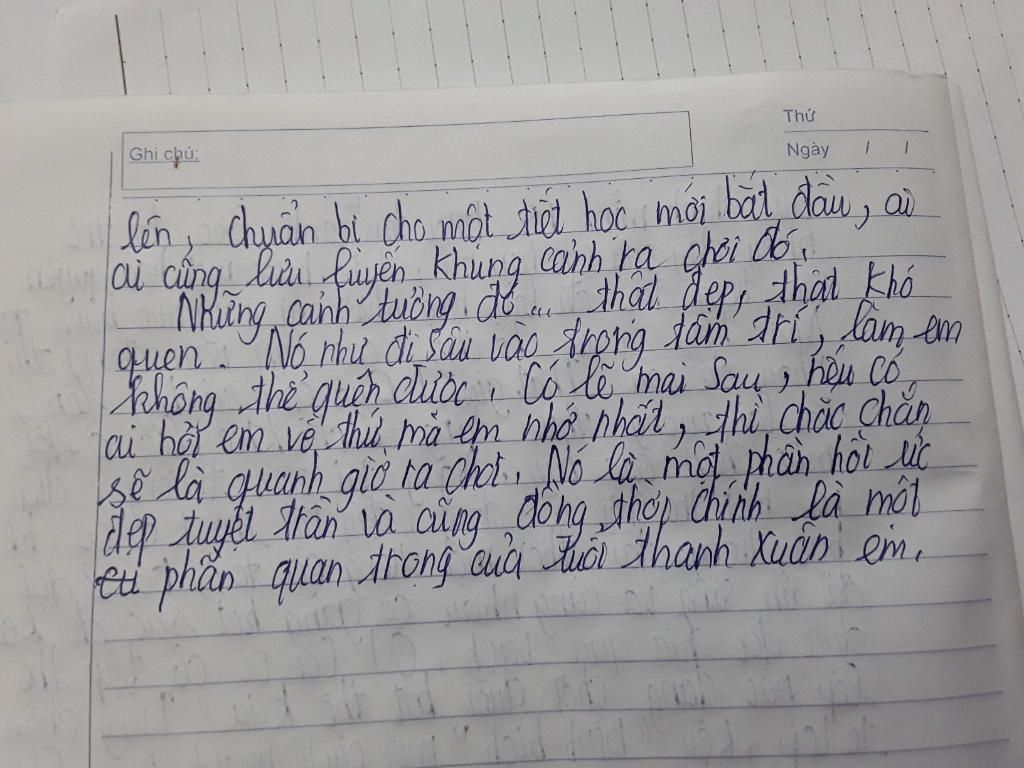 Thứ
Ghi chú:
Ngày / /
lên, chuẩn bị cho một tiết học mới bắt đầu, ai
ai cũng lưu luyến khung cảnh ra chơi đó.
Những cảnh tưởng đó... thật đẹp, thật khó
quen. Nó như đi sâu vào trong tâm trí, làm em
không thể quên được. Có lẽ mai sau, nếu có
ai hỏi em về thứ mà em nhớ nhất, thì chắc chắn
sẽ là quanh giờ ra chơi. Nó là một phần hồi ức
đẹp tuyệt trần và cũng đồng thời chính là một
phần quan trọng của tuổi thanh xuân em.